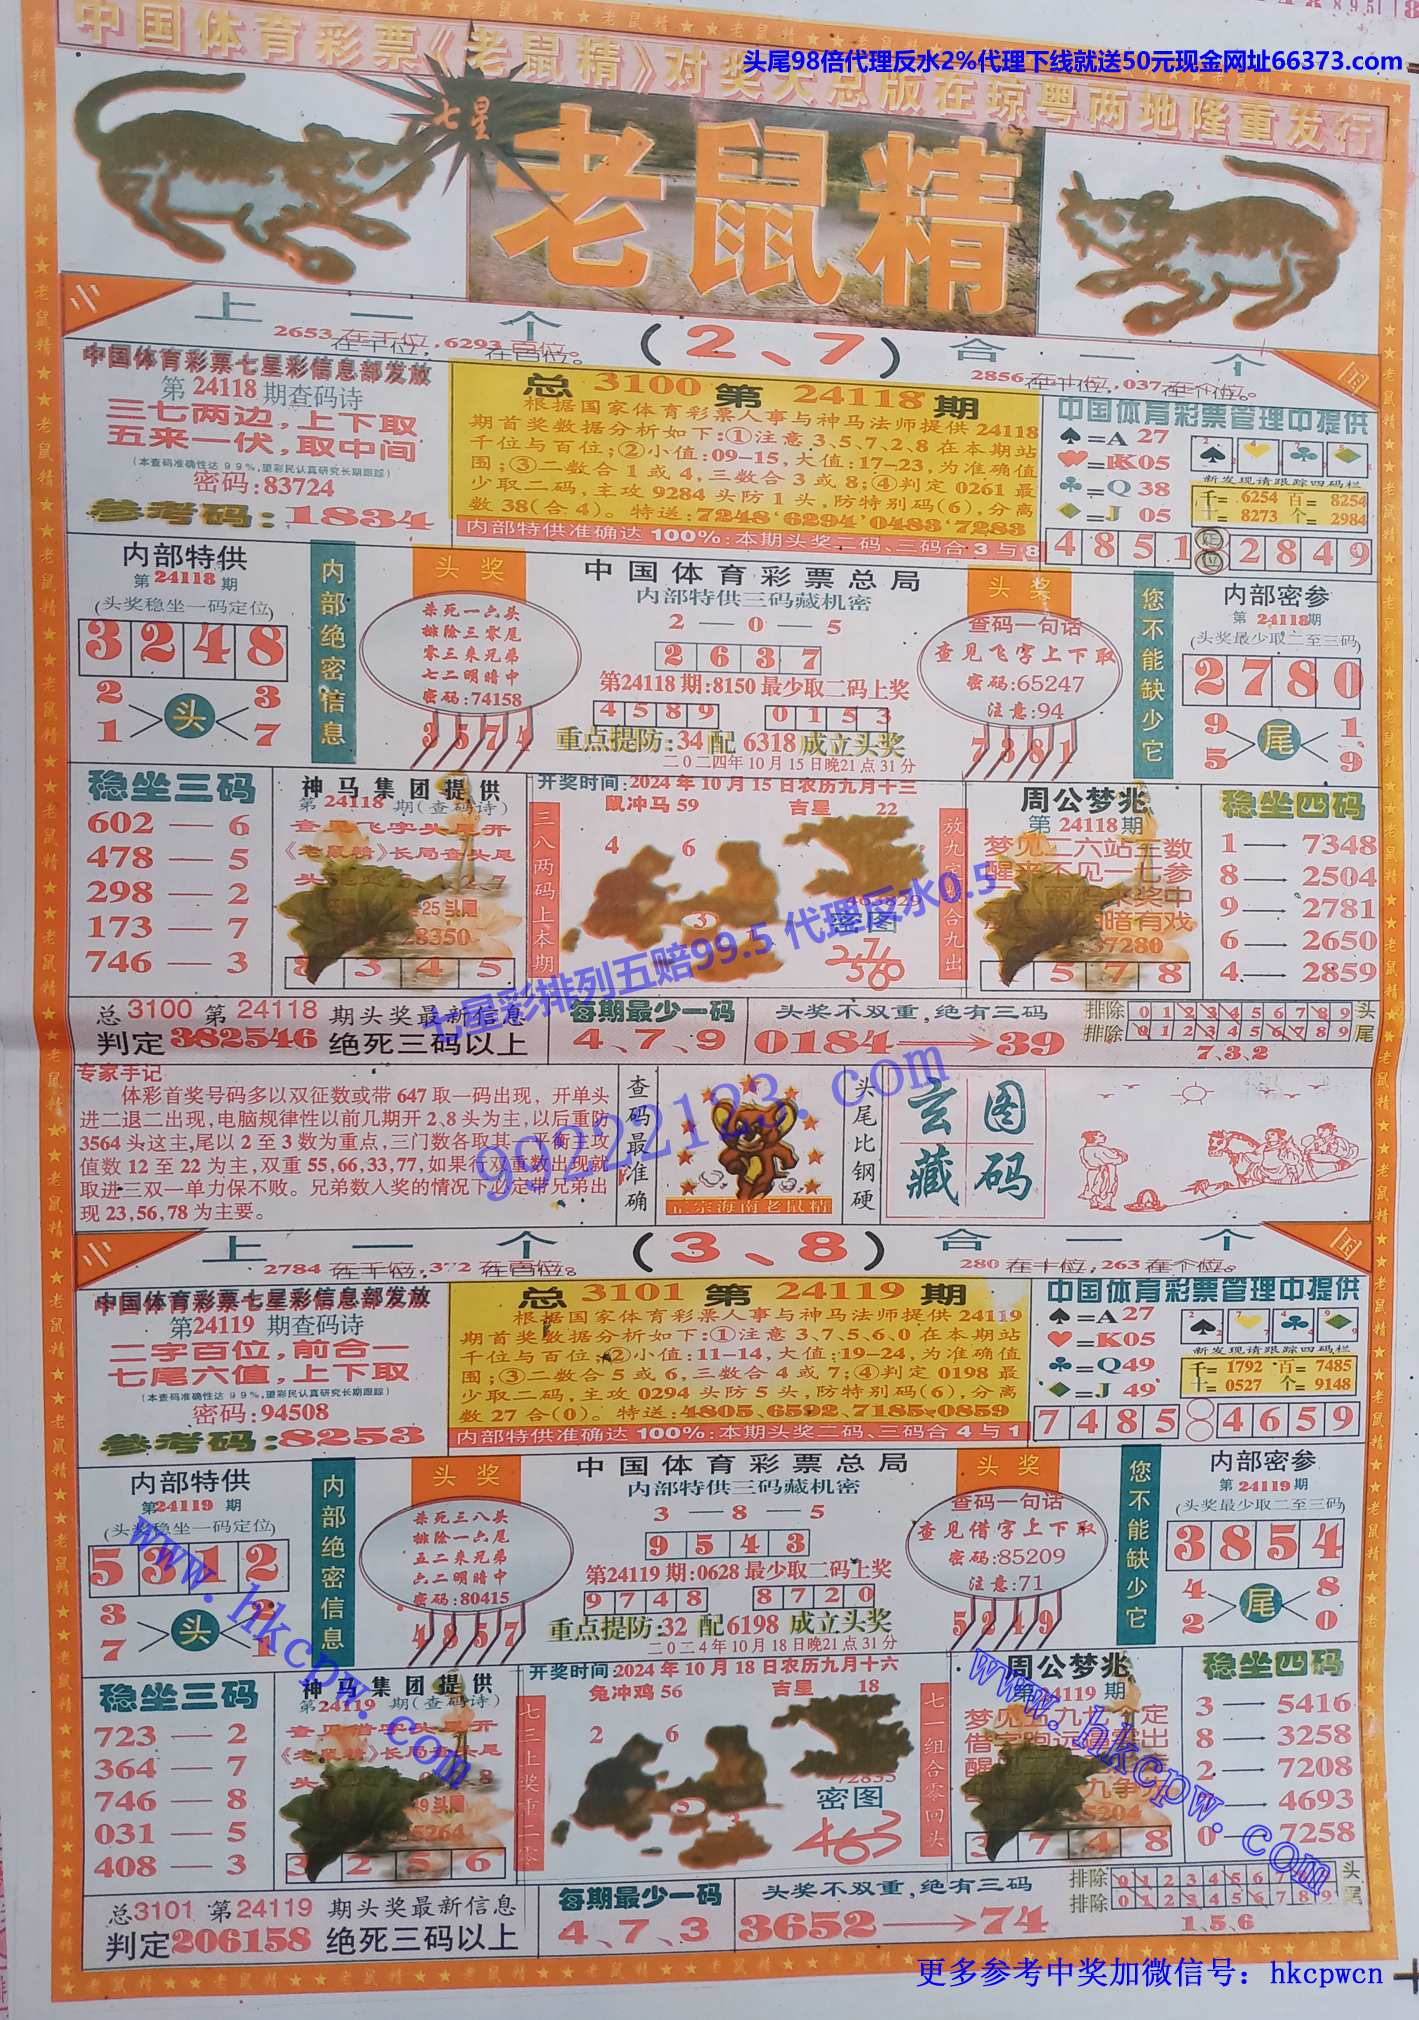 头尾98倍代理反水2%代理下线就送50元现金网址66373.com
中国体育彩票《老鼠精》对奖大总版在琼粤两地隆重发行
七星
老鼠精
小
上一个
(2、7)
合一个
国
2653在千位,6293在百位。
2856在十位,037在个位。
中国体育彩票七星彩信息部发放
第24118期查码诗
三七两边,上下取
五来一伏,取中间
(本查码准确性达99%,望彩民认真研究长期跟踪)
密码:83724
参考码:1834
总3100第24118期
根据国家体育彩票人事与神马法师提供24118
期首奖数据分析如下:①注意3、5、7、2、8在本期站
千位与百位;②小值:09-15,大值:17-23为准确值
围;③二数合1或4,三数合3或8;④判定0261最
少取二码,主攻9284头防1头,防特别码(6),分离
数38(合4)。特送:7248‘6294’0483‘7283
内部特供准确达100%:本期头奖二码、三码合3与8
中国体育彩票管理中提供
♠=A 27
♥=K05
♣=Q 38
♦=J 05
新发现请跟踪四码栏
千=6254 百=8254
十=8273 个=2984
4851定位2849
内部特供
第24118期
(头奖稳坐一码定位)
3248
2 3
头
1 7
内部绝密信息
头奖
杀死一六头
排除三零尾
零三来兄弟
七二明暗中
密码:74158
3574
中国体育彩票总局
内部特供三码藏机密
2—0—5
2637
第24118期:8150最少取二码上奖
4589 0153
重点提防:34配6318成立头奖
二0二四年10月15日晚21点31分
头奖
查码一句话
查见飞字上下取
密码:65247
注意:94
7381
您不能缺少它
内部密参
第24118期
(头奖最少取二至三码)
2780
9 1
尾
5 9
稳坐三码
602—6
478—5
298—2
173—7
746—3
神马集团提供
第24118期(查码诗)
《老鼠精》长局查头尾
25头尾
8350
8345
三八两码上本期
开奖时间:2024年10月15日农历九月十三
鼠冲马59 吉星 22
4 6
3
密图
2560
放九定数合九出
周公梦兆
第24118期
7280
578
稳坐四码
1—7348
8—2504
9—2781
6—2650
4—2859
七星彩排列五赔99.5 代理反水0.5
总3100第24118期头奖最新信息
判定382546绝死三码以上
每期最少一码
4、7、9
头奖不双重,绝有三码
0184→39
排除0123456789头
排除0123456789尾
7、3、2
专家手记
体彩首奖号码多以双征数或带647取一码出现,开单头
进二退二出现,电脑规律性以前几期开2、8头为主,以后重防
3564头这主,尾以2至3数为重点,三门数各取其一平衡主攻
值数12至22为主,双重55,66,33,77,如果行双重数出现就
取进三双一单力保不败。兄弟数人奖的情况下必定带兄弟出
现23,56,78为主要。
查码最准确
正宗海南老鼠精
头尾比钢硬
玄图藏码
99222123.com
小
上一个
(3、8)
合一个
国
2784在千位,372在百位。
280在十位,263在个位。
中国体育彩票七星彩信息部发放
第24119期查码诗
二字百位,前合一
七尾六值,上下取
(本查码准确性达99%,望彩民认真研究长期跟踪)
密码:94508
参考码:8253
总3101第24119期
根据国家体育彩票人事与神马法师提供24119
期首奖数据分析如下:①注意3、7、5、6、0在本期站
千位与百位;②小值:11-14,大值:19-24,为准确值
围;③二数合5或6,三数合4或7;④判定0198最
少取二码,主攻0294头防5头,防特别码(6),分离
数27合(0)。特送:4805、6592、7185、0859
内部特供准确达100%:本期头奖二码、三码合4与1
中国体育彩票管理中提供
♠=A27
♥=K05
♣=Q49
♦=J 49
新发现请跟踪四码栏
千=1792 百=7485
十=0527 个=9148
7485 4659
内部特供
第24119期
(头奖稳坐一码定位)
5312
3
头
7
www.hkcpw.com
内部绝密信息
头奖
杀死三八头
排除一六尾
五二来兄弟
六二明暗中
密码:80415
4857
中国体育彩票总局
内部特供三码藏机密
3—8—5
9543
第24119期:0628最少取二码上奖
9748 8720
重点提防:32配6198成立头奖
二0二4年10月18日晚21点31分
头奖
查码一句话
查见借字上下取
密码:85209
注意:71
5249
您不能缺少它
内部密参
第24119期
(头奖最少取二至三码)
3854
4 8
尾
2 0
稳坐三码
723—2
364—7
746—8
031—5
408—3
神马集团提供
第24119期(查码诗)
《老鼠精》长局查头尾
5264
3256
七三上奖重二零
开奖时间:2024年10月18日农历九月十六
兔冲鸡56 吉星 18
2 6
5 3
72835
密图
463
七一组合零回头
周公梦兆
第24119期
5204
3748
www.hkcpw.com
稳坐四码
3—5416
8—3258
2—7208
4693
0—7258
总3101第24119期头奖最新信息
判定206158绝死三码以上
每期最少一码
4、7、3
头奖不双重,绝有三码
3652→74
排除
头
排除0123456789尾
1、5、6
更多参考中奖加微信号：hkcpwcn